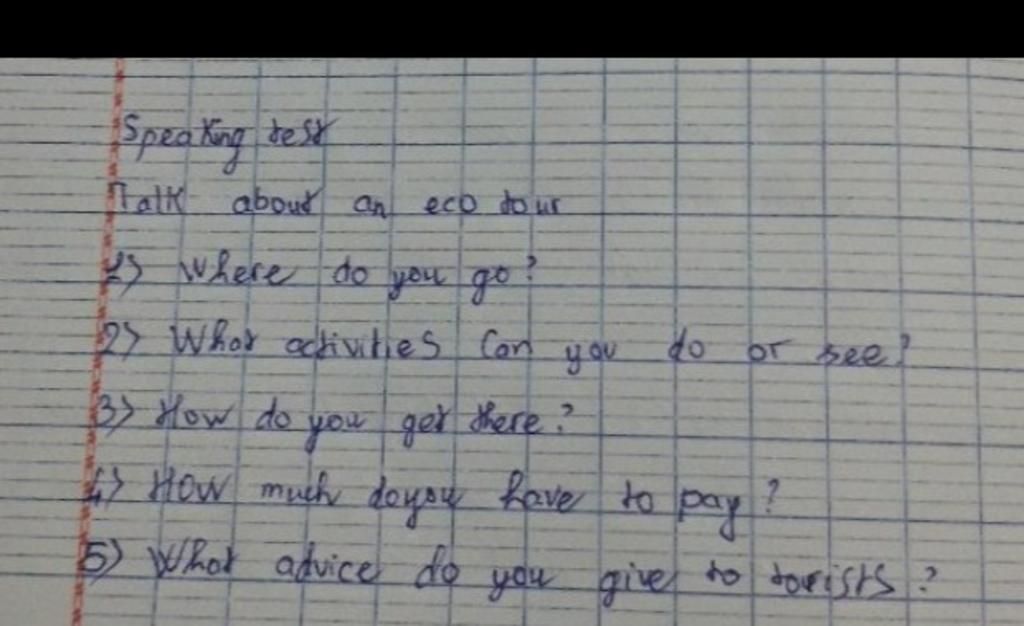 Speaking test
Talk about an eco tour
1) Where do you go?
2) What activities can you do or see?
3) How do you get there?
4) How much do you have to pay?
5) What advice do you give to tourists?